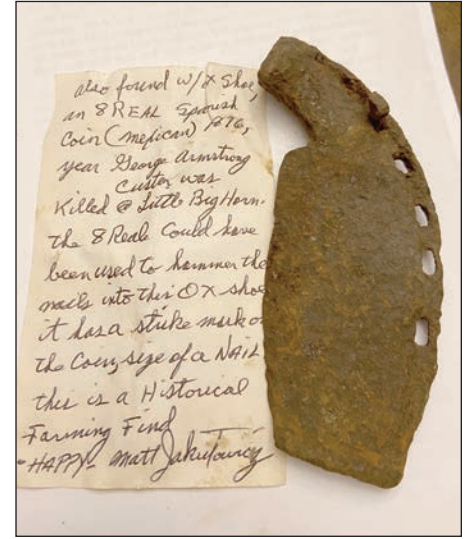 also found w/ OX Shoe,
an 8 REAL Spanish
Coin (mexican) 1876,
year George Armstrong
Custer was
Killed @ Little Big Horn.
the 8 Reale Could have
been used to hammer the
nails into this OX shoe
it has a strike mark on
the Coin, size of a NAIL
this is a Historical
Farming Find
"HAPPY" Matt